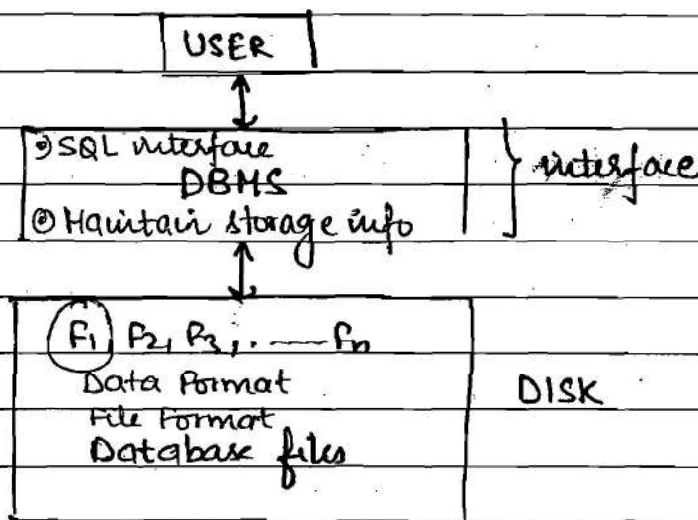 USER
SQL interface
DBMS
Maintain storage info
interface
F1, F2, F3, . —— Fn
Data Format
File Format
Database files
DISK